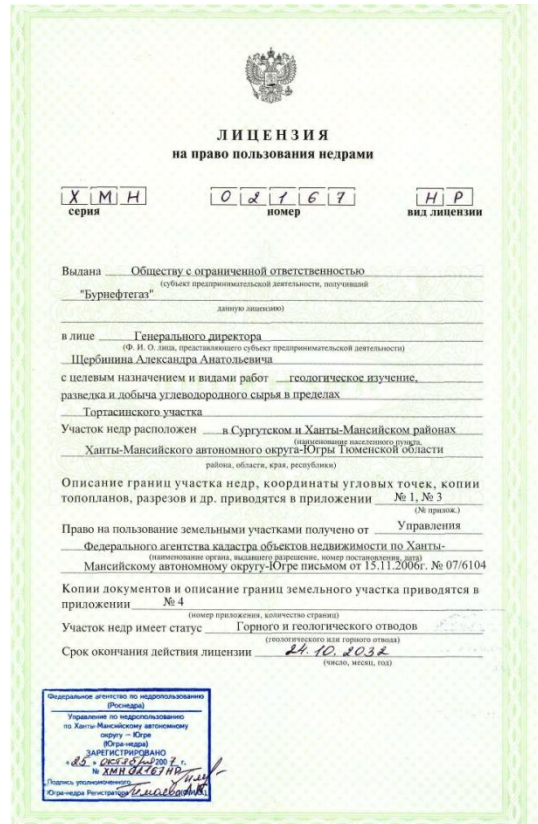 ЛИЦЕНЗИЯ
на право пользования недрами
Х М Н 0 2 1 6 7 Н Р
серия номер вид лицензии
Выдана Обществу с ограниченной ответственностью
(субъект предпринимательской деятельности, получивший
"Бурнефтегаз"
данную лицензию)
в лице Генерального директора
(Ф. И. О. лица, представляющего субъект предпринимательской деятельности)
Щербинина Александра Анатольевича
с целевым назначением и видами работ геологическое изучение,
разведка и добыча углеводородного сырья в пределах
Тортасинского участка
Участок недр расположен в Сургутском и Ханты-Мансийском районах
(наименование населенного пункта,
Ханты-Мансийского автономного округа-Югры Тюменской области
района, области, края, республики)
Описание границ участка недр, координаты угловых точек, копии
топопланов, разрезов и др. приводятся в приложении № 1, № 3
(№ прилож.)
Право на пользование земельными участками получено от Управления
Федерального агентства кадастра объектов недвижимости по Ханты-
(наименование органа, выдавшего разрешение, номер постановления, дата)
Мансийскому автономному округу-Югре письмом от 15.11.2006г. № 07/6104
Копии документов и описание границ земельного участка приводятся в
приложении № 4
(номер приложения, количество страниц)
Участок недр имеет статус Горного и геологического отводов
(геологического или горного отвода)
Срок окончания действия лицензии 24.10.2032
(число, месяц, год)
Федеральное агентство по недропользованию
(Роснедра)
Управление по недропользованию
по Ханты-Мансийскому автономному
округу – Югре
(Югра-недра)
ЗАРЕГИСТРИРОВАНО
« 25 » октября 2007 г.
№ ХМН 02167 НР
Подпись уполномоченного
Югра-недра Регистратора